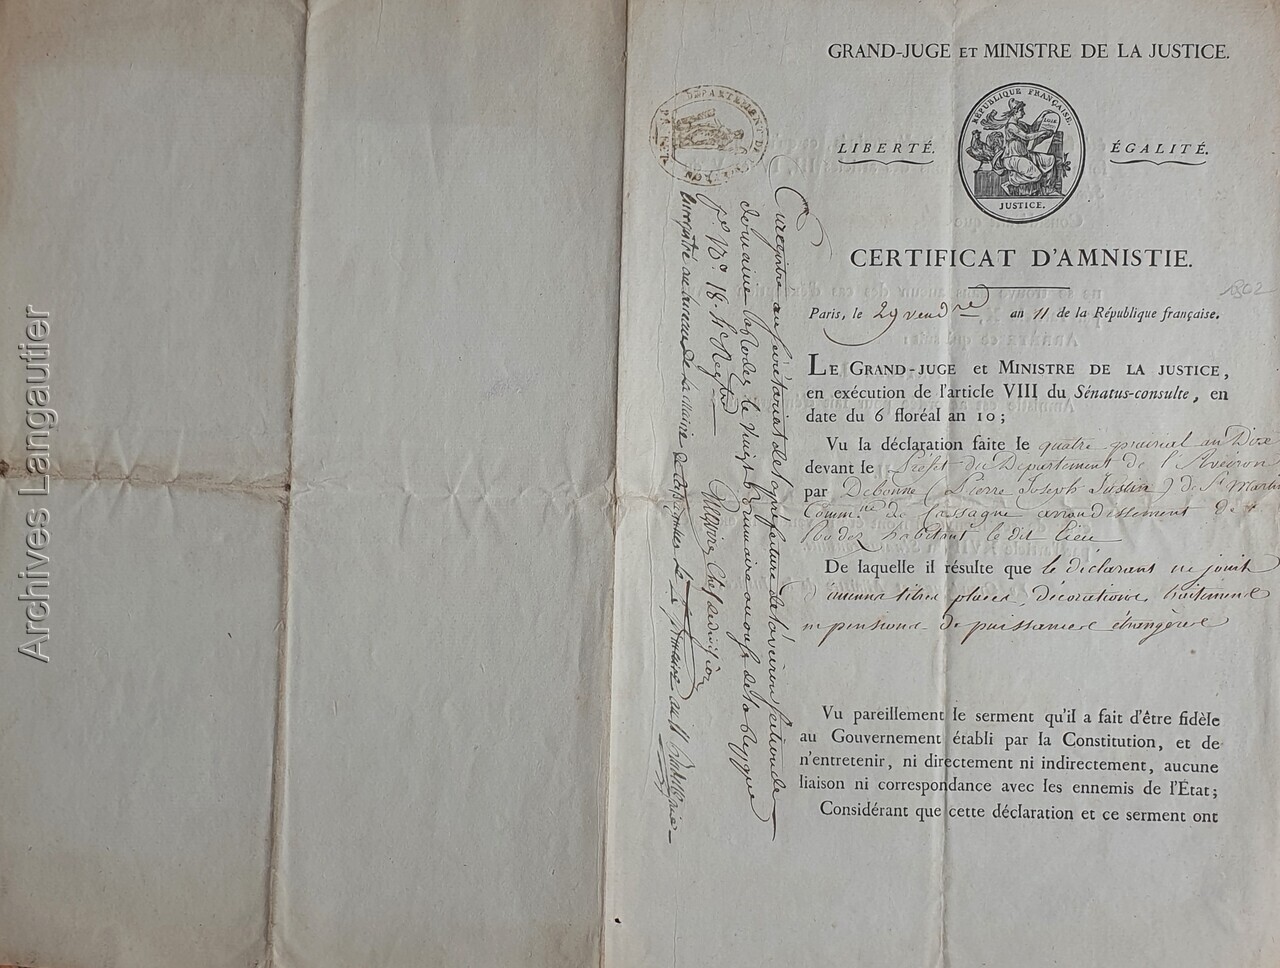 GRAND-JUGE ET MINISTRE DE LA JUSTICE.
RÉPUBLIQUE FRANÇAISE.
LOIS
LIBERTÉ. ÉGALITÉ.
JUSTICE.
CERTIFICAT D'AMNISTIE.
1802
Paris, le 29 vendre an 11 de la République française.
LE GRAND-JUGE et MINISTRE DE LA JUSTICE,
en exécution de l'article VIII du Sénatus-consulte, en
date du 6 floréal an 10;
Vu la déclaration faite le quatre prairial an Dix
devant le Préfet du Département de l'Aveiron
par Debonne (Pierre Joseph Justin) de St Martin
Commne de Cassagne arrondissement de
Rodez habitant le dit lieu
De laquelle il résulte que le déclarant ne jouit
d'aucuns titres places, décorations, traitement
ni pensions de puissances étrangères
Vu pareillement le serment qu'il a fait d'être fidèle
au Gouvernement établi par la Constitution, et de
n'entretenir, ni directement ni indirectement, aucune
liaison ni correspondance avec les ennemis de l'État;
Considérant que cette déclaration et ce serment ont
DÉPARTEMENT DE
Enregistré au secrétariat de la préfecture de l'aveiron section de
domaine à Rodez le vingt brumaire an onze de la Rep. que
No. 18. 4e Regtre
Chef de division
Enregistré au bureau de la mairie de Cassagnes le frimaire an 11
Archives Langautier